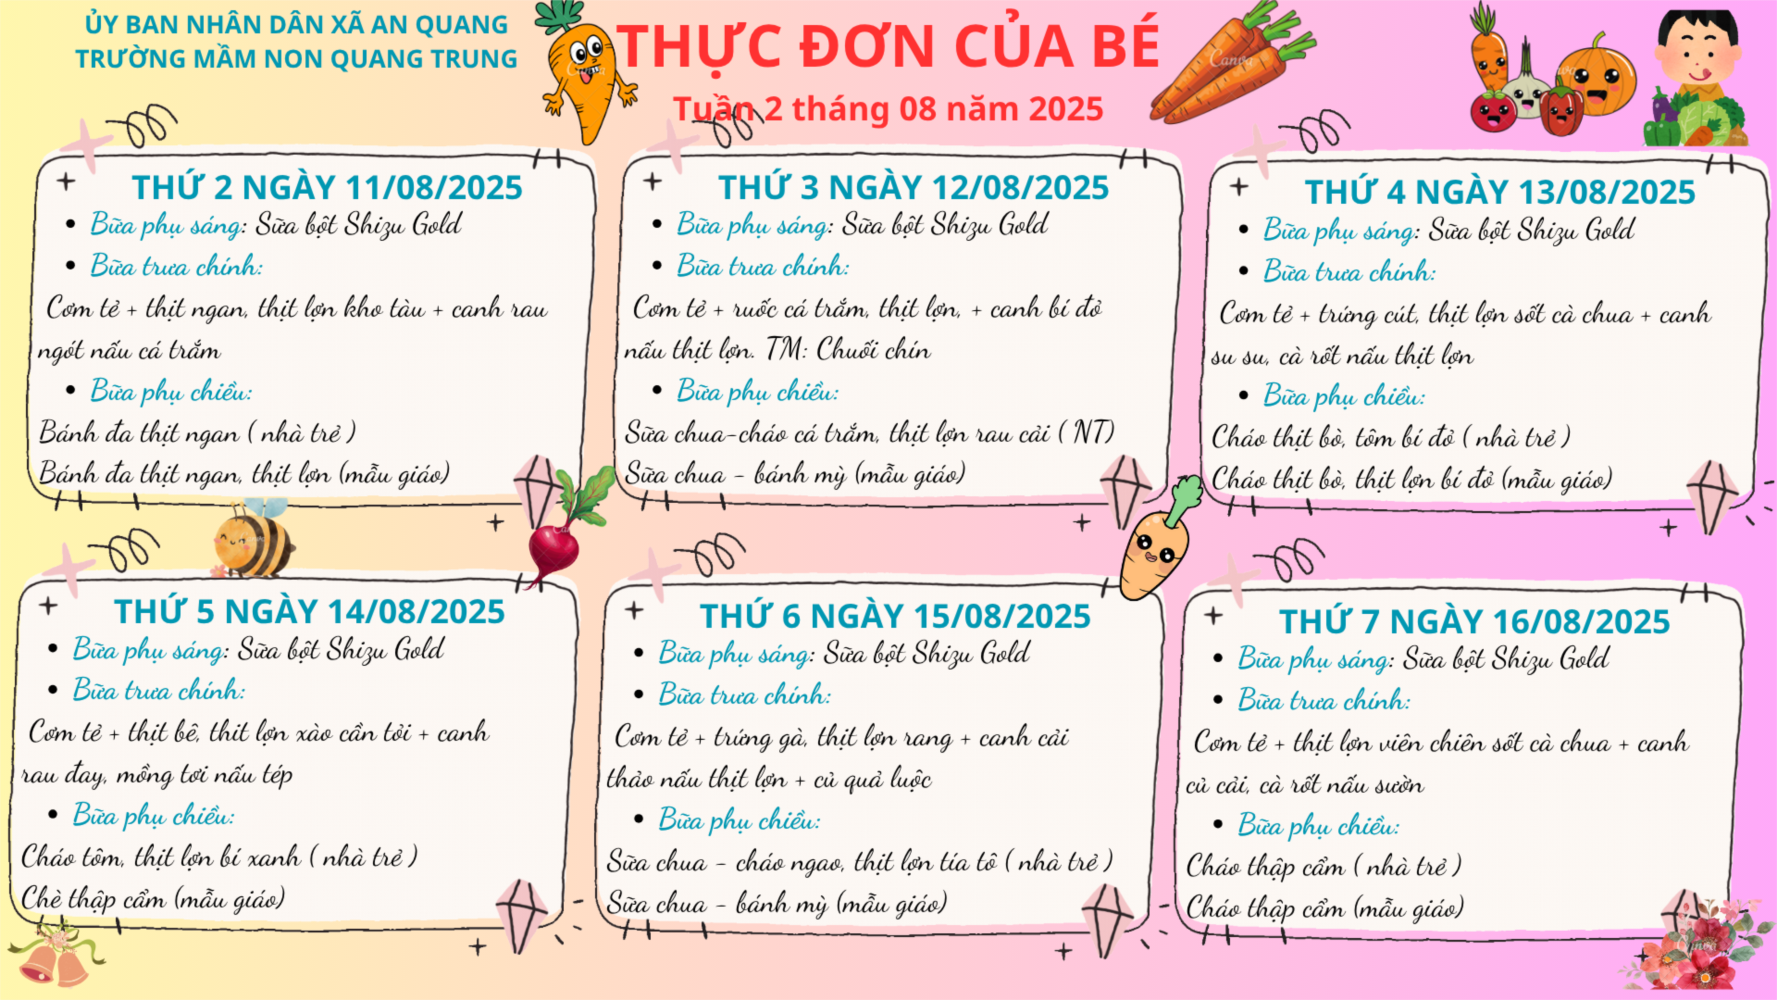 ỦY BAN NHÂN DÂN XÃ AN QUANG
TRƯỜNG MẦM NON QUANG TRUNG
THỰC ĐƠN CỦA BÉ
Tuần 2 tháng 08 năm 2025
THỨ 2 NGÀY 11/08/2025
• Bữa phụ sáng: Sữa bột Shizu Gold
• Bữa trưa chính:
Cơm tẻ + thịt ngan, thịt lợn kho tàu + canh rau
ngót nấu cá trắm
• Bữa phụ chiều:
Bánh đa thịt ngan ( nhà trẻ )
Bánh đa thịt ngan, thịt lợn (mẫu giáo)
THỨ 3 NGÀY 12/08/2025
• Bữa phụ sáng: Sữa bột Shizu Gold
• Bữa trưa chính:
Cơm tẻ + ruốc cá trắm, thịt lợn, + canh bí đỏ
nấu thịt lợn. TM: Chuối chín
• Bữa phụ chiều:
Sữa chua-cháo cá trắm, thịt lợn rau cải ( NT)
Sữa chua - bánh mỳ (mẫu giáo)
THỨ 4 NGÀY 13/08/2025
• Bữa phụ sáng: Sữa bột Shizu Gold
• Bữa trưa chính:
Cơm tẻ + trứng cút, thịt lợn sốt cà chua + canh
su su, cà rốt nấu thịt lợn
• Bữa phụ chiều:
Cháo thịt bò, tôm bí đỏ ( nhà trẻ )
Cháo thịt bò, thịt lợn bí đỏ (mẫu giáo)
THỨ 5 NGÀY 14/08/2025
• Bữa phụ sáng: Sữa bột Shizu Gold
• Bữa trưa chính:
Cơm tẻ + thịt bê, thit lợn xào cần tỏi + canh
rau đay, mồng tơi nấu tép
• Bữa phụ chiều:
Cháo tôm, thịt lợn bí xanh ( nhà trẻ )
Chè thập cẩm (mẫu giáo)
THỨ 6 NGÀY 15/08/2025
• Bữa phụ sáng: Sữa bột Shizu Gold
• Bữa trưa chính:
Cơm tẻ + trứng gà, thịt lợn rang + canh cải
thảo nấu thịt lợn + củ quả luộc
• Bữa phụ chiều:
Sữa chua - cháo ngao, thịt lợn tía tô ( nhà trẻ )
Sữa chua - bánh mỳ (mẫu giáo)
THỨ 7 NGÀY 16/08/2025
• Bữa phụ sáng: Sữa bột Shizu Gold
• Bữa trưa chính:
Cơm tẻ + thịt lợn viên chiên sốt cà chua + canh
củ cải, cà rốt nấu sườn
• Bữa phụ chiều:
Cháo thập cẩm ( nhà trẻ )
Cháo thập cẩm (mẫu giáo)